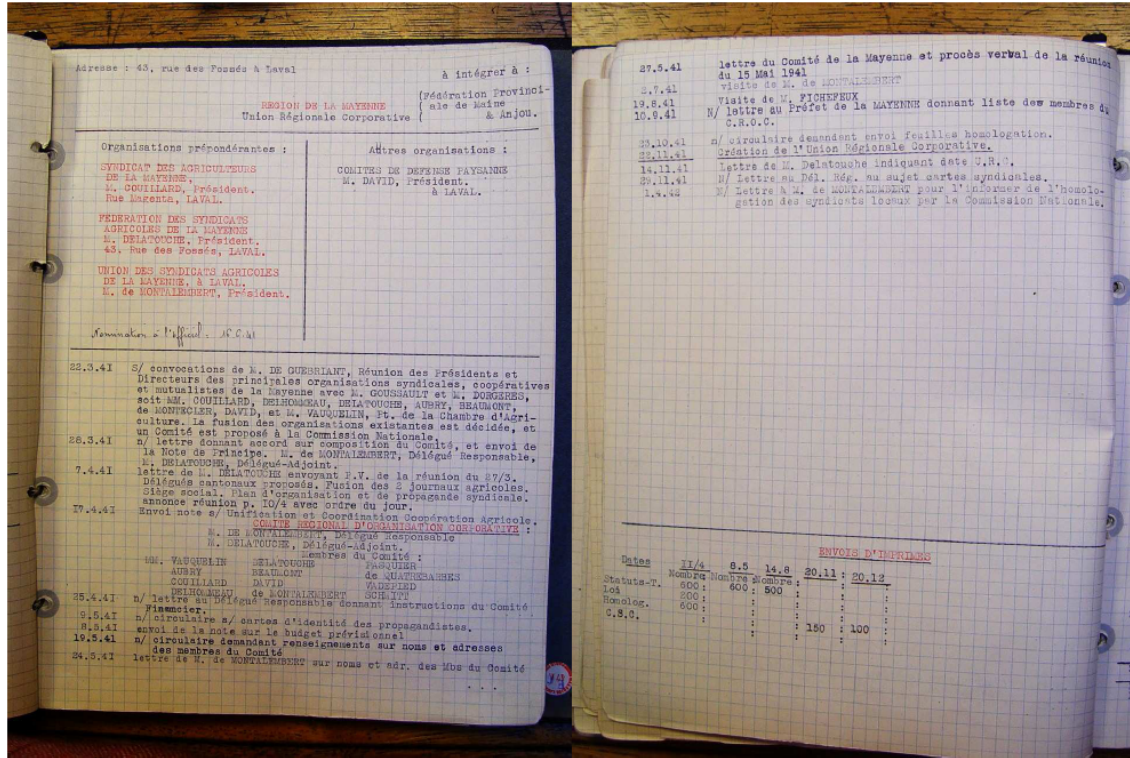 Adresse : 43, rue des Fossés à Laval
à intégrer à :
REGION DE LA MAYENNE
Union Régionale Corporative
(Fédération Provinci-
( ale de Maine
( & Anjou.
Organisations prépondérantes :
SYNDICAT DES AGRICULTEURS
DE LA MAYENNE,
M. COUILLARD, Président.
Rue Magenta, LAVAL.
FEDERATION DES SYNDICATS
AGRICOLES DE LA MAYENNE
M. DELATOUCHE, Président.
43, Rue des Fossés, LAVAL.
UNION DES SYNDICATS AGRICOLES
DE LA MAYENNE, à LAVAL.
M. de MONTALEMBERT, Président.
Autres organisations :
COMITES DE DEFENSE PAYSANNE
M. DAVID, Président.
à LAVAL.
Nomination à l'Officiel :
22.3.4I S/ convocations de M. DE GUEBRIANT, Réunion des Présidents et
Directeurs des principales organisations syndicales, coopératives
et mutualistes de la Mayenne avec M. GOUSSAULT et M. DORGERES,
soit MM. COUILLARD, DELHOMMEAU, DELATOUCHE, AUBRY, BEAUMONT,
de MONTECLER, DAVID, et M. VAUQUELIN, Pt. de la Chambre d'Agri-
culture. La fusion des organisations existantes est décidée, et
un Comité est proposé à la Commission Nationale.
28.3.4I n/ lettre donnant accord sur composition du Comité, et envoi de
la Note de Principe. M. de MONTALEMBERT, Délégué Responsable,
M. DELATOUCHE, Délégué-Adjoint.
7.4.4I lettre de M. DELATOUCHE envoyant P.V. de la réunion du 27/3.
Délégués cantonaux proposés. Fusion des 2 journaux agricoles.
Siège social. Plan d'organisation et de propagande syndicale.
annonce réunion p. IO/4 avec ordre du jour.
I7.4.4I Envoi note s/ Unification et Coordination Coopération Agricole.
COMITE REGIONAL D'ORGANISATION CORPORATIVE :
M. DE MONTALEMBERT, Délégué Responsable
M. DELATOUCHE, Délégué-Adjoint.
Membres du Comité :
MM. VAUQUELIN DELATOUCHE PASQUIER
AUBRY BEAUMONT de QUATREBARBES
COUILLARD DAVID VADEPIED
DELHOMMEAU de MONTALEMBERT SCHMITT
25.4.4I n/ lettre au Délégué Responsable donnant instructions du Comité
Financier.
9.5.4I n/ circulaire s/ cartes d'identité des propagandistes.
8.5.4I envoi de la note sur le budget prévisionnel
19.5.41 n/ circulaire demandant renseignements sur noms et adresses
des membres du Comité
24.5.4I lettre de M. de MONTALEMBERT sur noms et adr. des Mbs du Comité
. . .
27.5.41 lettre du Comité de la Mayenne et procès verbal de la réunion
du 15 Mai 1941
2.7.41 visite de M. de MONTALEMBERT
19.8.41 Visite de M. FICHEFEUX
10.9.41 N/ lettre au Préfet de la MAYENNE donnant liste des membres du
C.R.O.C.
23.10.41 n/ circulaire demandant envoi feuilles homologation.
22.11.41 Création de l'Union Régionale Corporative.
14.11.41 Lettre de M. Delatouche indiquant date U.R.C.
29.11.41 N/ Lettre au Dél. Rég. au sujet cartes syndicales.
1.4.42 N/ Lettre à M. de MONTALEMBERT pour l'informer de l'homolo-
gation des syndicats locaux par la Commission Nationale.
ENVOIS D'IMPRIMES
Dates II/4 8.5 14.8 20.11 : 20.12
Nombre: Nombre :Nombre :
Statuts-T. 600 : 600 : 500 : :
Loi 200 : : : :
Homolog. 600 : : : :
C.S.C. : : : 150 : 100 :